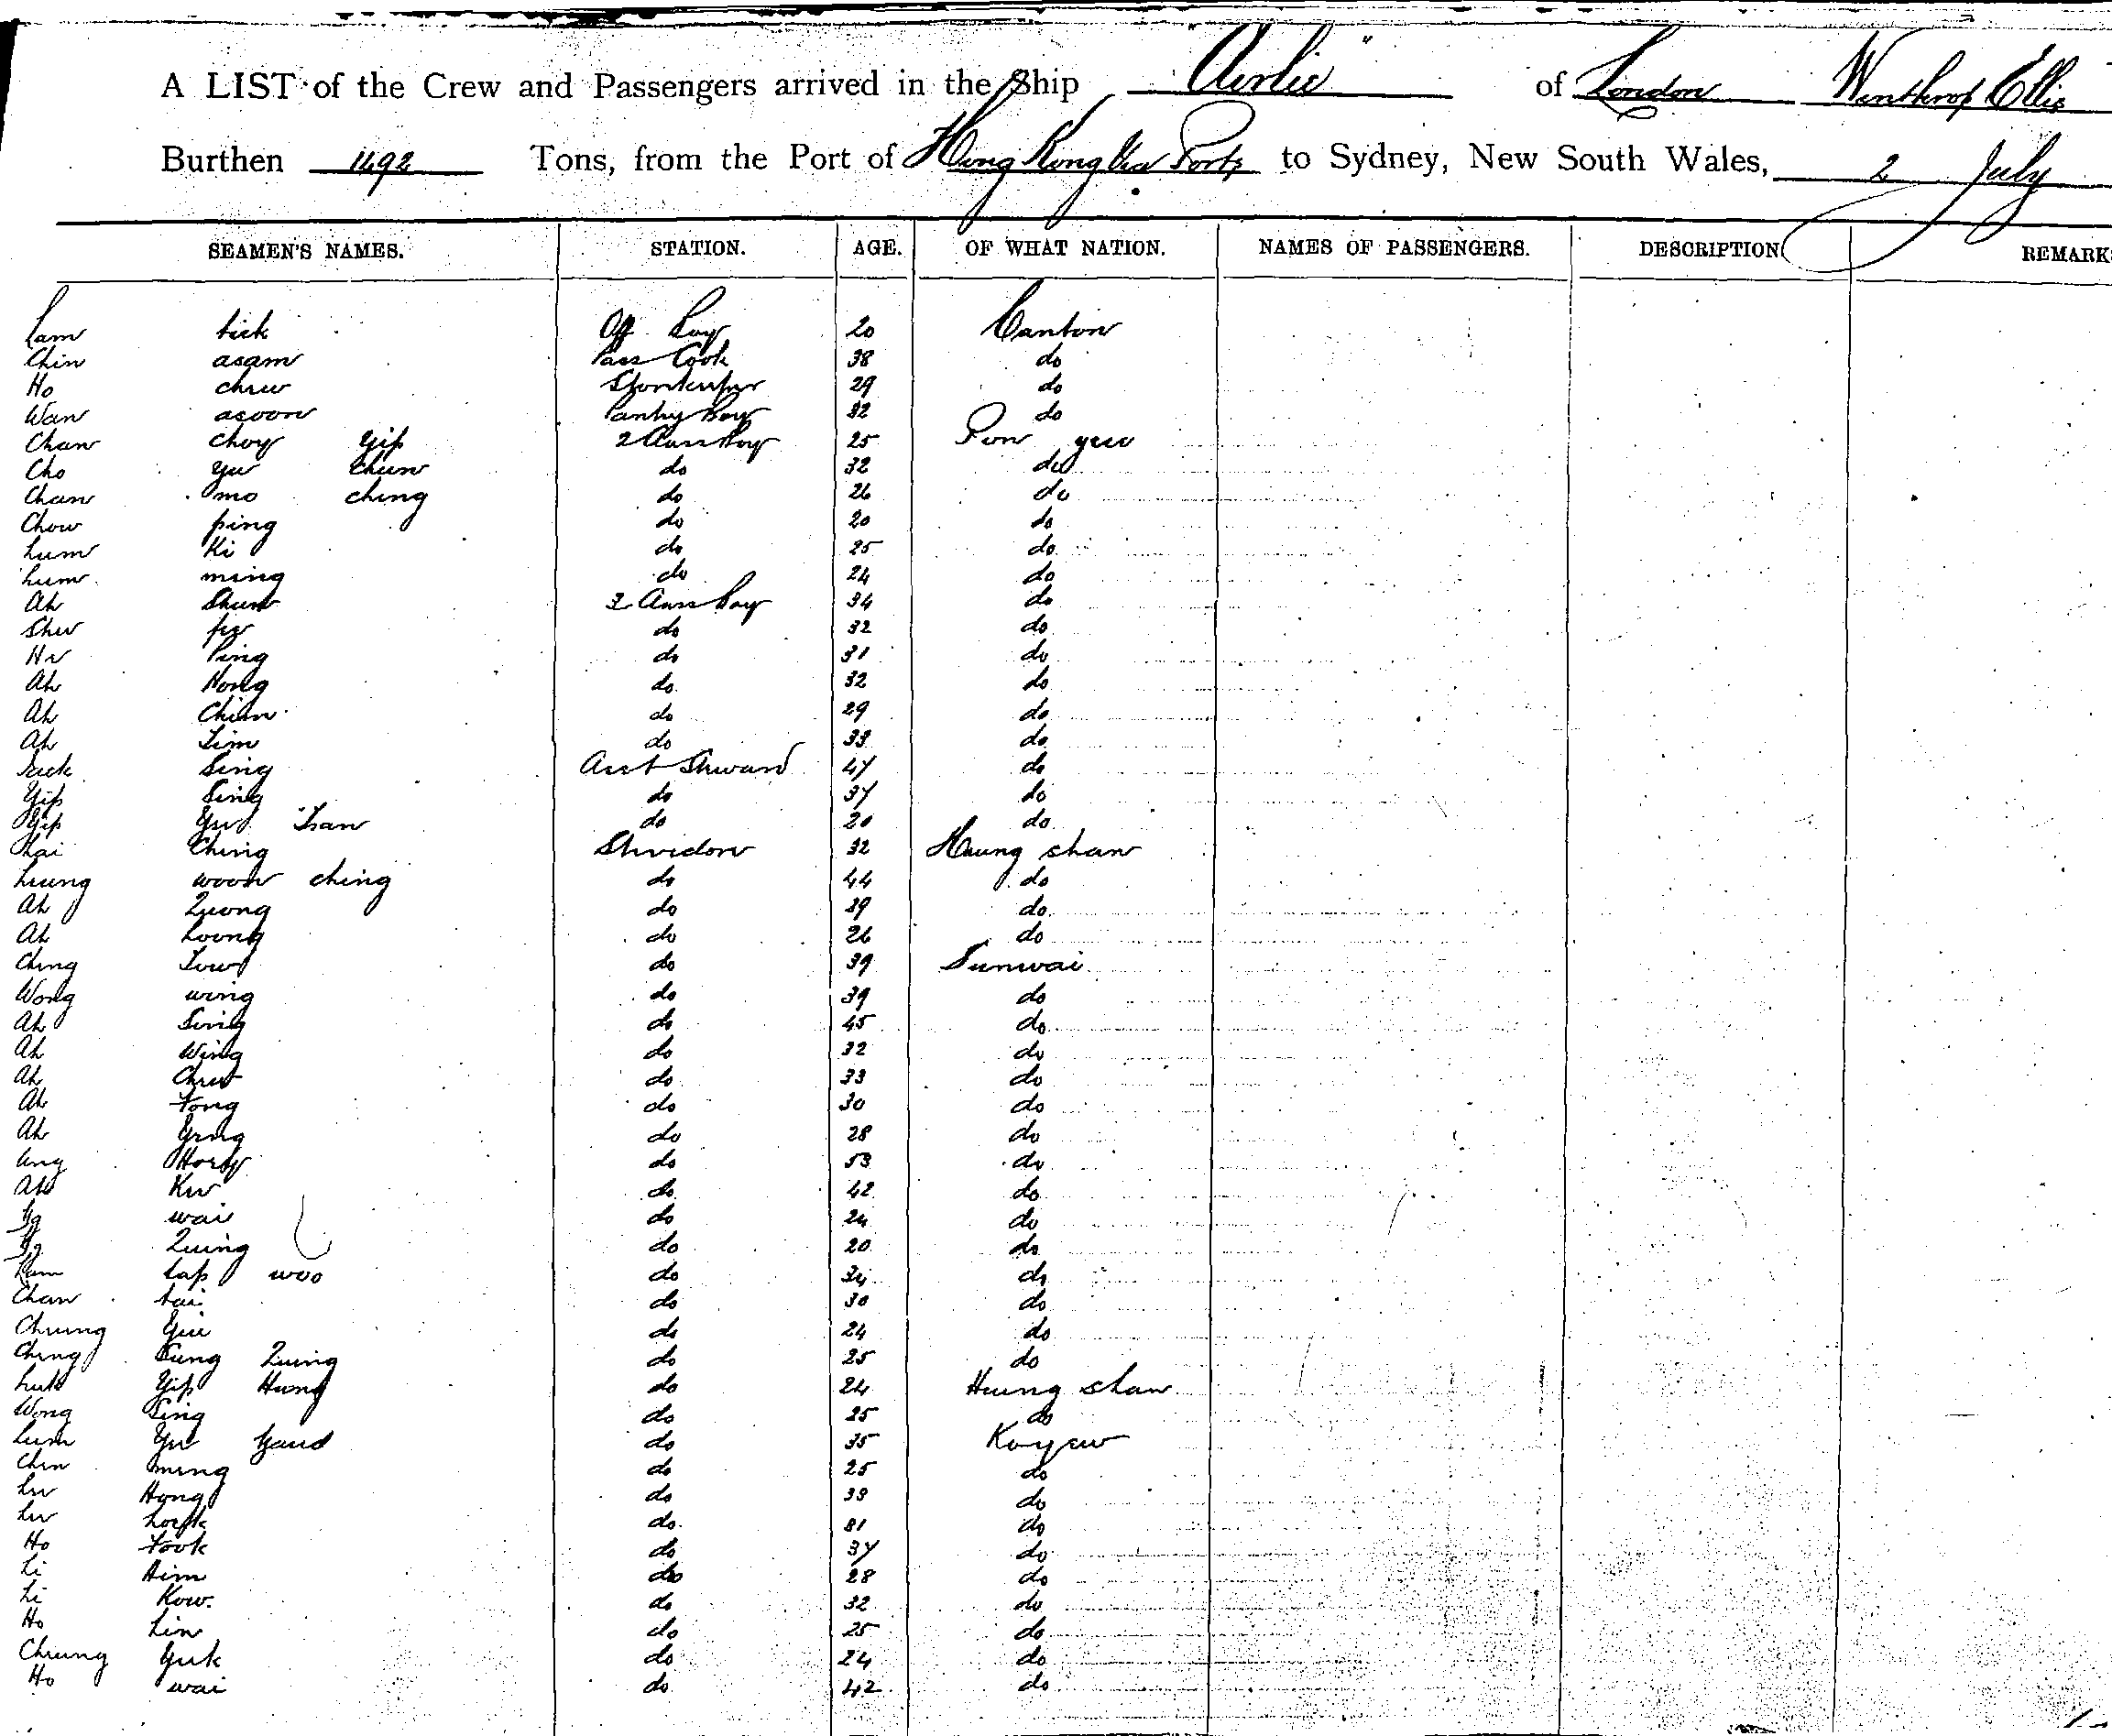 A LIST of the Crew and Passengers arrived in the Ship "Airlie" of London Winthrop Ellis
Burthen 1492 Tons, from the Port of Hong Kong Via Ports to Sydney, New South Wales, 2 July
SEAMEN'S NAMES. STATION. AGE. OF WHAT NATION. NAMES OF PASSENGERS. DESCRIPTION REMARK
Lam tick Off Boy 20 Canton
Chin asam Pass Cook 38 do
Ho chew 29 do
Wan asoon Pantry Boy 32 do
Chan choy Yip 2 Class Boy 25 Pon yew
Cho Yu Chun do 32 do
Chan mo ching do 26 do
Chow ping do 20 do
Lum Ki do 25 do
Lum ming do 24 do
Ah Shun Boy 34 do
Shu do 32 do
Ping do 31 do
Ah Nong do 32 do
Ah Chin do 29 do
Ah Tim do 33 do
Sing Asst Steward 47 do
Yip Sing do 37 do
Yip Yu do 20 do
Ching 32 Heung shan
Leung woon ching do 44 do
Ah Quong do 39 do
Ah Loong do 26 do
Ching do 39 Sunwai
Wong wing do 39 do
Ah Sing do 45 do
Ah Wing do 32 do
Ah Chew do 33 do
Ah Fong do 30 do
Ah do 28 do
do 53 do
Ah do 42 do
wai do 24 do
Quing do 20 do
Lam tap woo do 34 do
Chan tai do 30 do
Cheung Yiu do 24 do
Ching Sung Quing do 25 do
Luk Yip Hung do 24 Heung shan
Wong Sing do 25 do
Lum Yu do 35 Koyew
Chin ming do 25 do
Lu Hong do 33 do
Lu do 31 do
Ho Fook do 37 do
Li Him do 28 do
Li Kow. do 32 do
Ho Lin do 25 do
Cheung Yuk do 24 do
Ho wai do 42 do